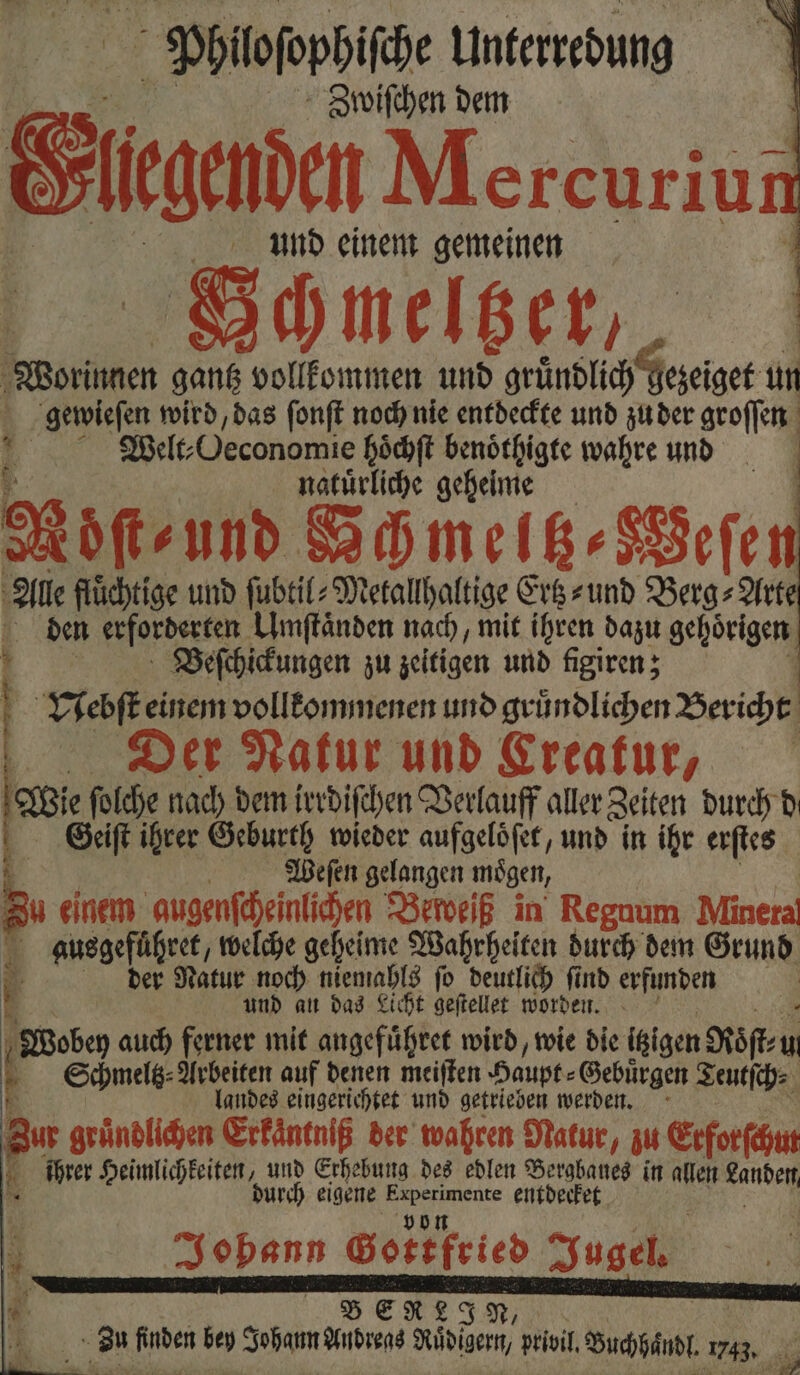 Philoſophiſche Unterredung
Zwiſchen dem
Fliegenden Mercurium
und einem gemeinen
Schmeltzer,
Worinnen gantz vollkommen und gruͤndlich gezeiget un
gewieſen wird, das ſonſt noch nie entdeckte und zu der groſſen
Welt-Oeconomie hoͤchſt benoͤthigte wahre und
natuͤrliche geheime
Roͤſt-und Schmeltz-Weſen
Alle fluͤchtige und ſubtil-Metallhaltige Ertz-und Berg-Arte
den erforderten Umſtaͤnden nach, mit ihren dazu gehoͤrigen
Beſchickungen zu zeitigen und figiren;
Nebſt einem vollkommenen und gruͤndlichen Bericht
Der Natur und Creatur,
Wie ſolche nach dem irrdiſchen Verlauff aller Zeiten durch d
Geiſt ihrer Geburth wieder aufgeloͤſet, und in ihr erſtes
Weſen gelangen moͤgen,
Zu einem augenſcheinlichen Beweiß in Regnum Mineral
ausgefuͤhret, welche geheime Wahrheiten durch dem Grund
der Natur noch niemahls ſo deutlich ſind erfunden
und an das Licht geſtellet worden.
Wobey auch ferner mit angefuͤhret wird, wie die itzigen Roͤſt-u
Schmeltz-Arbeiten auf denen meiſten Haupt-Gebuͤrgen Teutſch-
landes eingerichtet und getrieben werden.
Zur gruͤndlichen Erkaͤntniß der wahren Natur, zu Erforſchun
ihrer Heimlichkeiten, und Erhebung des edlen Bergbaues in allen Landen,
durch eigene Experimente entdecket
von
Johann Gottfried Jugel.
BERLIN,
Zu finden bey Johann Andreas Ruͤdigern, privil. Buchhaͤndl. 1743.